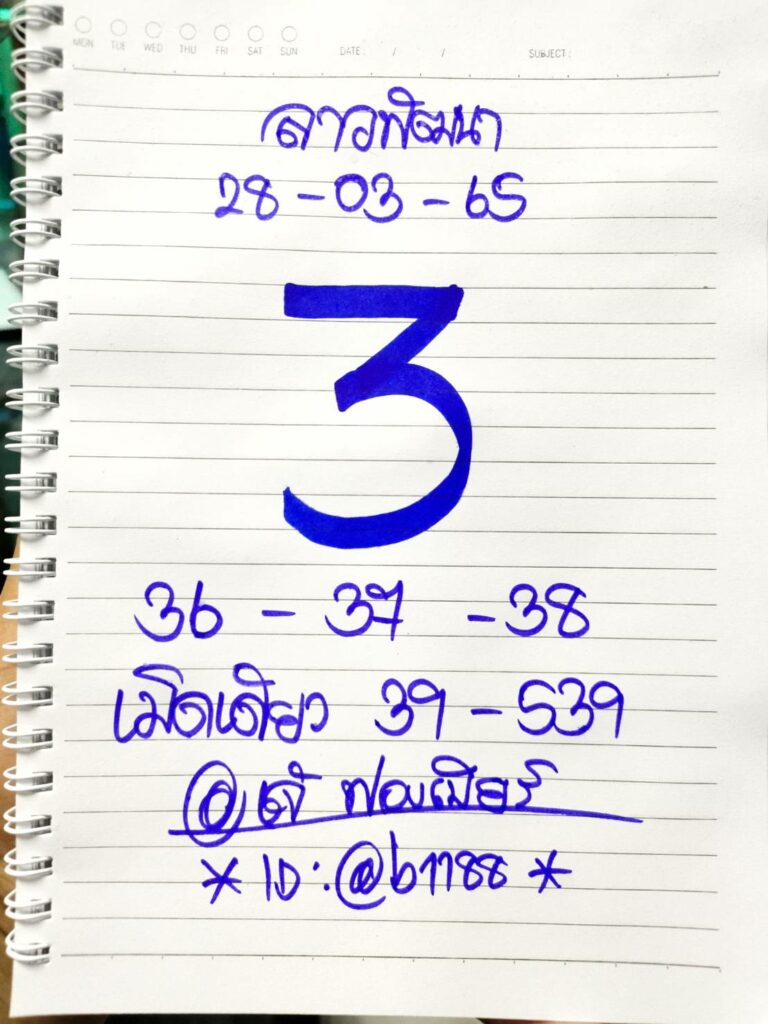 MON TUE WED THU FRI SAT SUN DATE: / / SUBJECT:
ลาวพัฒนา
28 - 03 - 65
3
36 - 37 - 38
เม็ดเดียว 39 - 539
@ เจ๊ ฟองเบียร์
* ID : @b1188 *